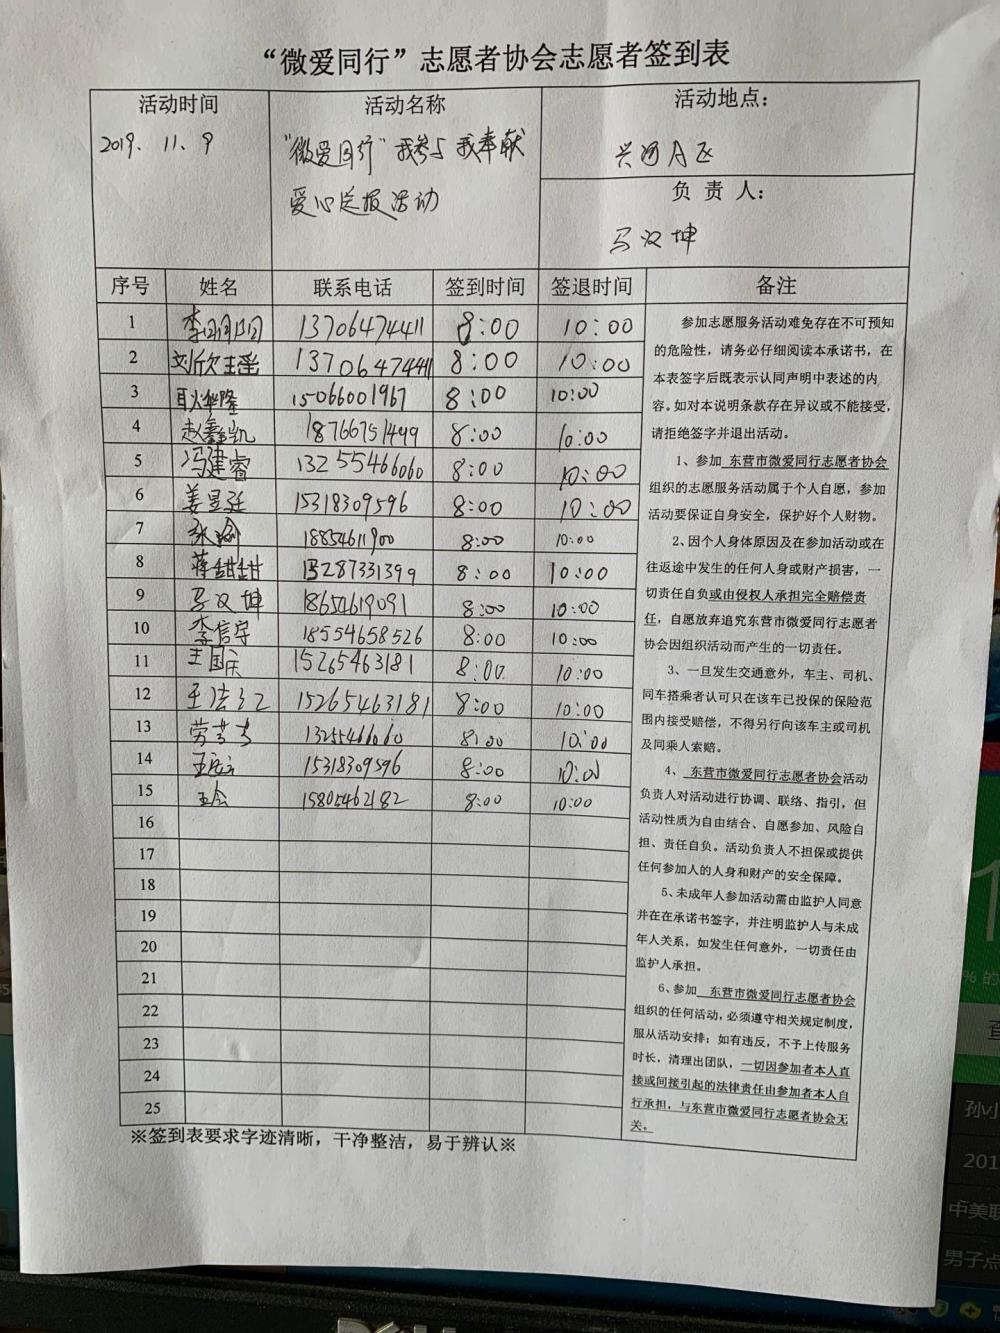 “微爱同行”志愿者协会志愿者签到表
活动时间 活动名称 活动地点：
2019、11、9 “微爱同行”我参与 我奉献
爱心送报活动
兴河片区
负 责 人：
马汉坤
序号 姓名 联系电话 签到时间 签退时间 备注
1 李明阳 13706474411 8:00 10:00
2 刘欣瑶 13706474411 8:00 10:00
3 耿华隆 15066001967 8:00 10:00
4 赵鑫凯 18766751499 8:00 10:00
5 冯建睿 13255466060 8:00 10:00
6 姜昱廷 15318309596 8:00 10:00
7 张瑜 18854611900 8:00 10:00
8 蒋甜甜 15287331399 8:00 10:00
9 马汉坤 18654619091 8:00 10:00
10 李信守 18554658526 8:00 10:00
11 王国庆 15265463181 8:00 10:00
12 15265463181 8:00 10:00
13 劳芳芳 13255466060 8:00 10:00
14 15318309596 8:00 10:00
15 王会 15805462182 8:00 10:00
16
17
18
19
20
21
22
23
24
25
参加志愿服务活动难免存在不可预知
的危险性，请务必仔细阅读本承诺书，在
本表签字后既表示认同声明中表述的内
容。如对本说明条款存在异议或不能接受，
请拒绝签字并退出活动。
1、参加 东营市微爱同行志愿者协会
组织的志愿服务活动属于个人自愿，参加
活动要保证自身安全，保护好个人财物。
2、因个人身体原因及在参加活动或在
往返途中发生的任何人身或财产损害，一
切责任自负或由侵权人承担完全赔偿责
任，自愿放弃追究东营市微爱同行志愿者
协会因组织活动而产生的一切责任。
3、一旦发生交通意外，车主、司机、
同车搭乘者认可只在该车已投保的保险范
围内接受赔偿，不得另行向该车主或司机
及同乘人索赔。
4、 东营市微爱同行志愿者协会活动
负责人对活动进行协调、联络、指引，但
活动性质为自由结合、自愿参加、风险自
担、责任自负。活动负责人不担保或提供
任何参加人的人身和财产的安全保障。
5、未成年人参加活动需由监护人同意
并在在承诺书签字，并注明监护人与未成
年人关系，如发生任何意外，一切责任由
监护人承担。
6、参加 东营市微爱同行志愿者协会
组织的任何活动，必须遵守相关规定制度，
服从活动安排；如有违反，不予上传服务
时长，清理出团队，一切因参加者本人直
接或间接引起的法律责任由参加者本人自
行承担，与东营市微爱同行志愿者协会无
关。
※签到表要求字迹清晰，干净整洁，易于辨认※
% 的
孙小
201
中美联
男子点